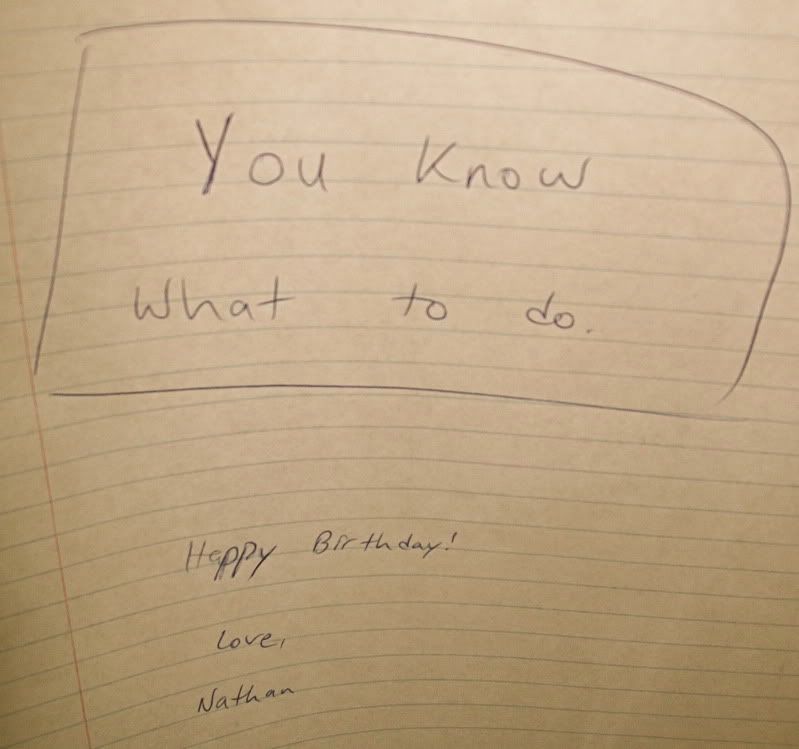 You Know
What to do.
Happy Birthday!
Love,
Nathan